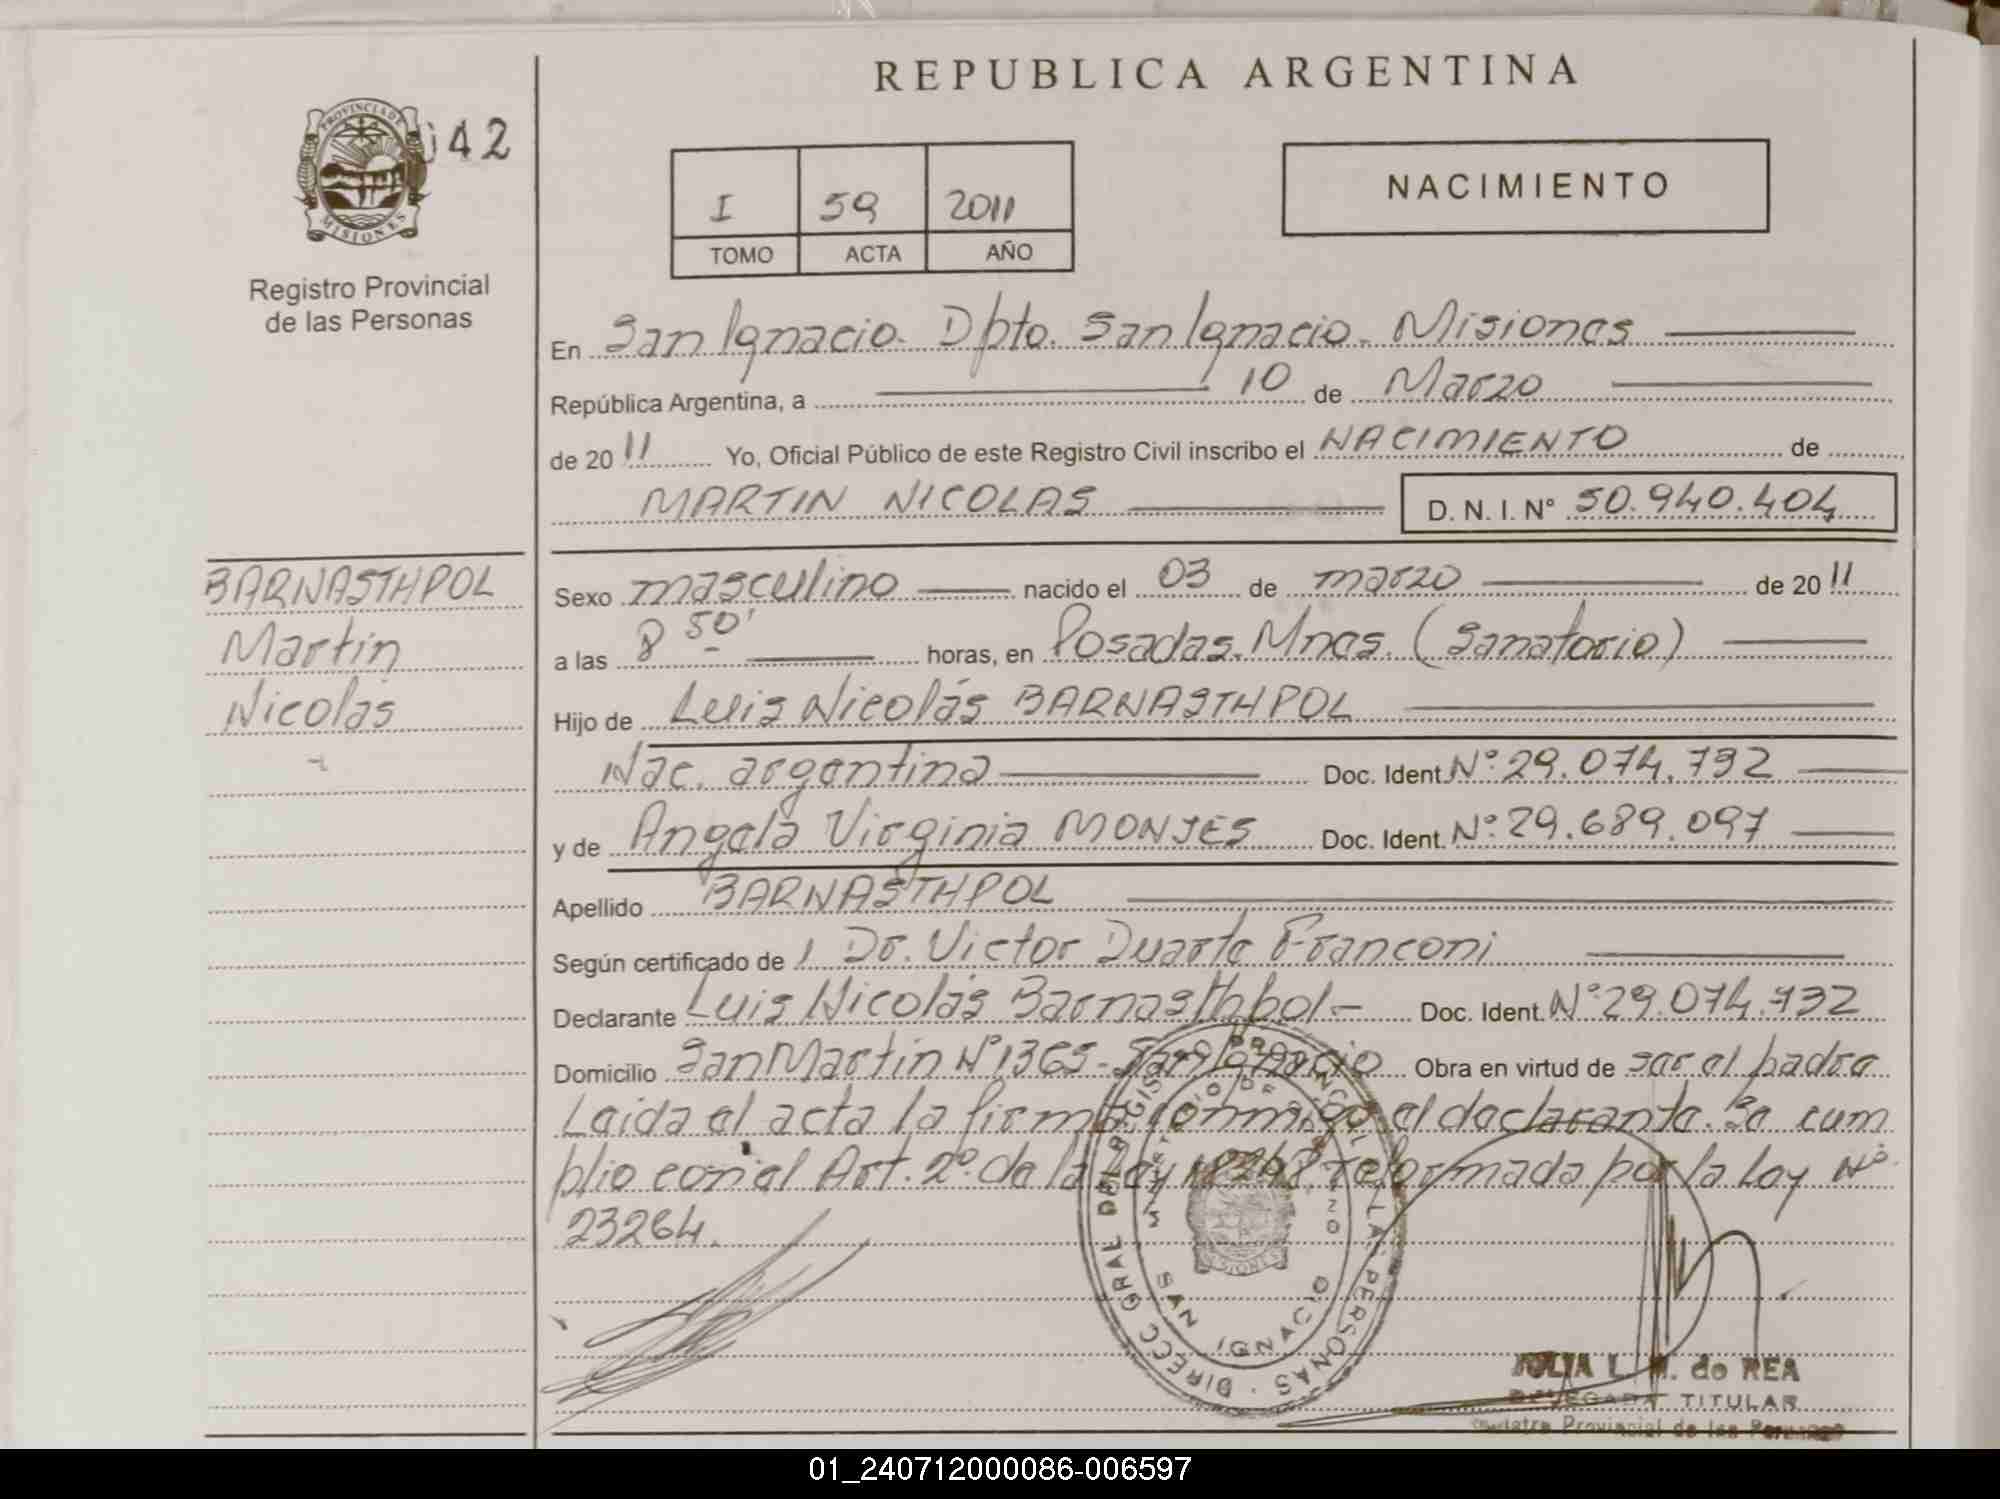 REPUBLICA ARGENTINA
PROVINCIA DE MISIONES
042
Registro Provincial
de las Personas
I 59 2011
TOMO ACTA AÑO
NACIMIENTO
En San Ignacio. Dpto. San Ignacio. Misiones
República Argentina, a 10 de Marzo
de 2011 Yo, Oficial Público de este Registro Civil inscribo el NACIMIENTO de
MARTIN NICOLAS D. N. I. Nº 50.940.404
BARNASTHPOL
Martin
Nicolás
Sexo masculino nacido el 03 de marzo de 2011
a las 8 50' horas, en Posadas. Mnes. (Sanatorio)
Hijo de Luis Nicolás BARNASTHPOL
Nac. argentina Doc. Ident. Nº 29.074.732
y de Angela Virginia MONJES Doc. Ident. Nº 29.689.097
Apellido BARNASTHPOL
Según certificado de Dr. Victor Duarte Franconi
Declarante Luis Nicolás Barnasthpol - Doc. Ident. Nº 29.074.732
Domicilio San Martin Nº 1365 - San Ignacio Obra en virtud de ser el padre
Leida el acta la firma conmigo el declarante. Se cum
plio con el Art. 2º de la Ley 18248 reformada por la Ley Nº
23264.
DIRECC GRAL DEL REGISTRO PROVINCIAL DE LAS PERSONAS
MINISTERIO DE GOBIERNO
SAN IGNACIO
MISIONES
JULIA L. M. de REA
DELEGADA TITULAR
Registro Provincial de las Personas
01_240712000086-006597